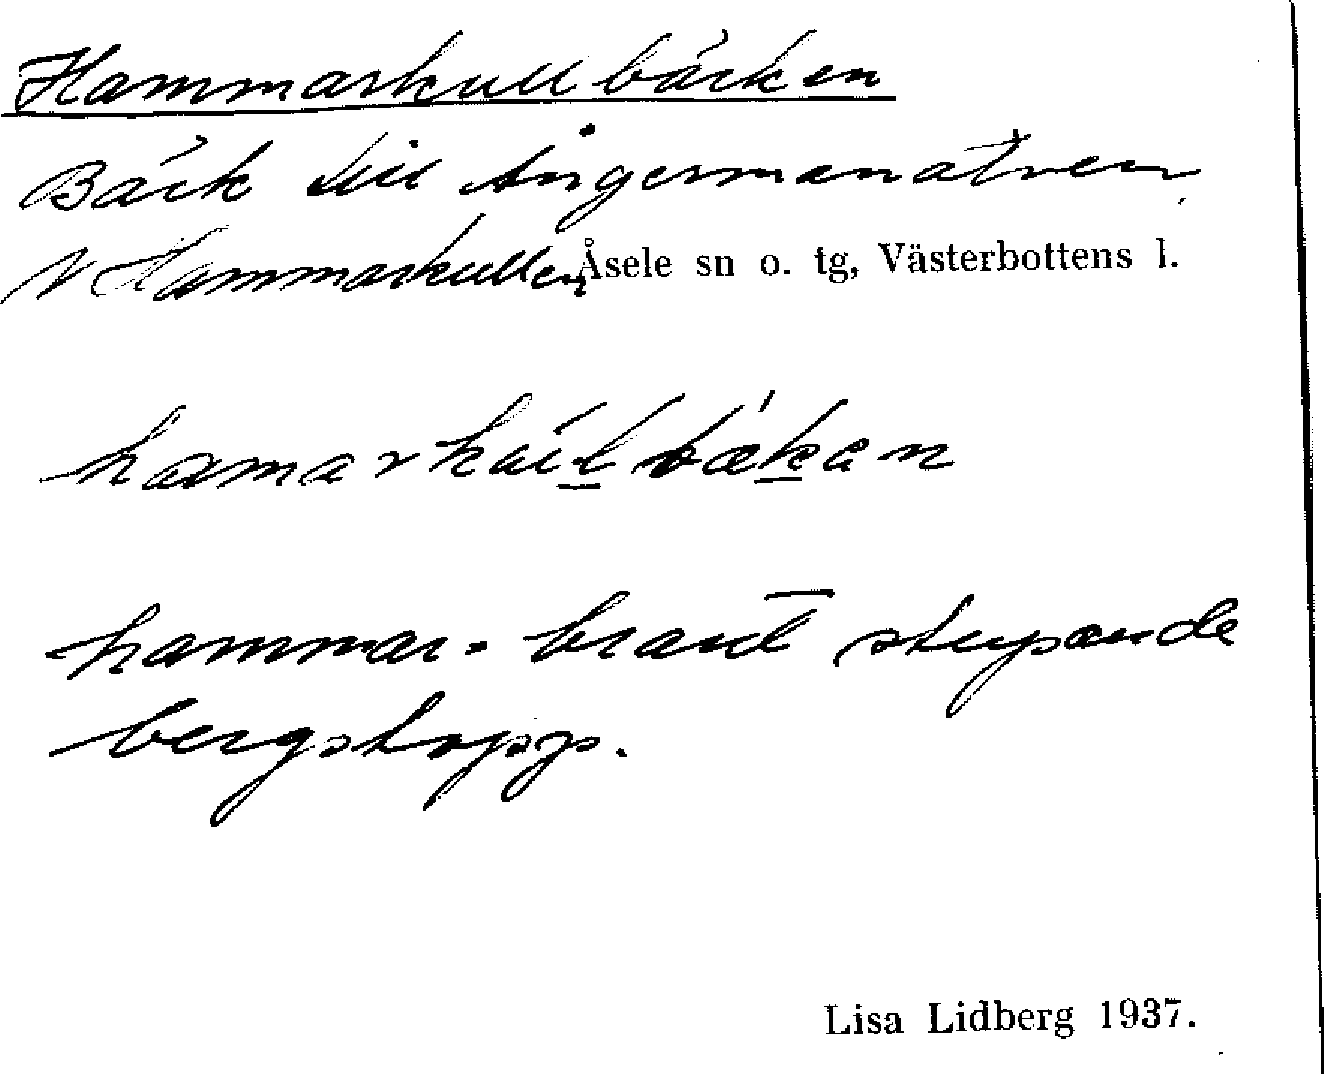 Hammarkullbäcken
Bäck till Ångermanälven
V Hammarkullen Åsele sn o. tg, Västerbottens l.
hamarkul bækan
hammar = brant stupande
bergstopp.
Lisa Lidberg 1937.